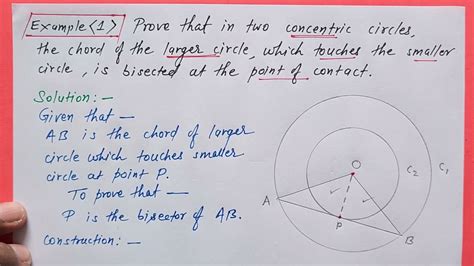 Example <1> Prove that in two concentric circles,
the chord of the larger circle, which touches the smaller
circle, is bisected at the point of contact.
Solution:-
Given that —
AB is the chord of larger
circle which touches smaller
circle at point P.
To prove that —
P is the bisector of AB.
Construction:-
O
C2
C1
A
P
B